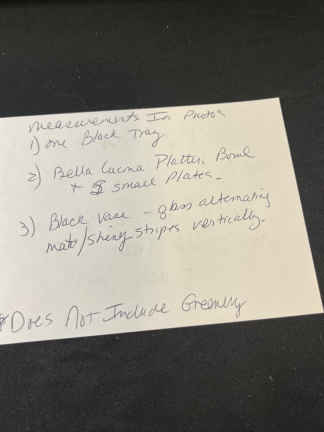 measurements In Photos
1) one Black Tray
2) Bella Cucina Platter, Bowl
+ small Plates.
3) Black vase - glass alternating
mate/shiny stripes vertically.
*Does Not Include Greenery